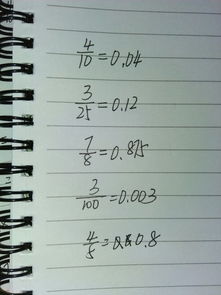 4/10=0.04
3/25=0.12
7/8=0.875
3/100=0.003
4/5=0.8